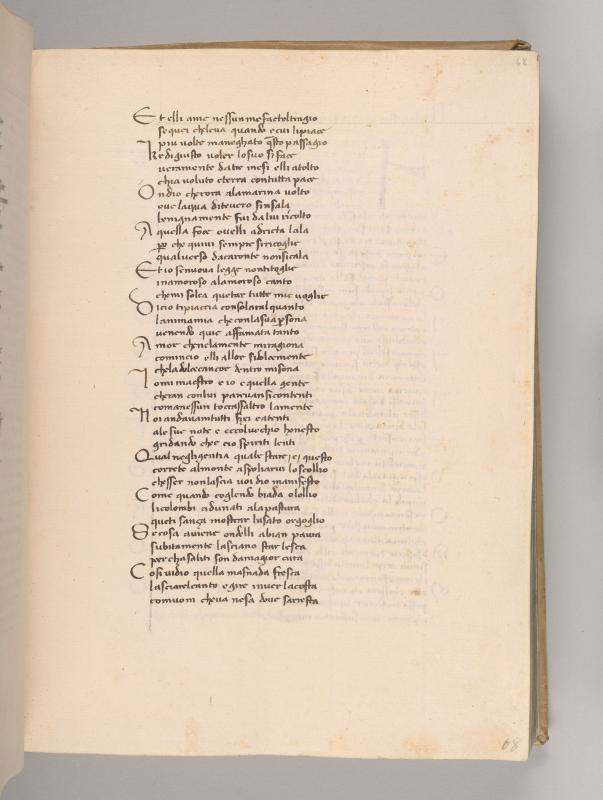 68
Et elli ame nessun me facto oltragio
se quei che leva quando e cui li piace
piu volte maneghato q̄sto passagio
ke di giusto voler lo suo si face
veramente da tre mesi elli a tolto
chi a voluto etrar con tutta pace
Ondio chera ala marina volto
ove laqua di tevero sinsala
benignamente fui da lui ricolto
A quella foce ovelli a dricta lala
ꝑo che quivi sempre si ricoglie
qual verso dacaronte non si cala
Et io se nuova legge non ti toglie
o amoroso alamoroso canto
che mi solea quetar tutte mie voglie
Di cio ti piaccia consolar alquanto
lanima mia che con la sua ꝑsona
venendo quie affannata tanto
Amor che nela mente mi ragiona
comincio elli allor si dolcemente
che la dolceca ancor dentro mi sona
Lo mi maestro e io e quella gente
cheran con lui parevan si contenti
com a nessun toccassaltro la mente
Noi andavam tutti fixi e atenti
ale sue note e ecco lvechio honesto
gridando che e cio spiriti lenti
Qual negligentia quale stare e questo
correte al monte a spoliarvi lo scoglio
chesser non lascia voi dio manifesto
Come quando coglendo biada o lollio
li colombi adunati ala pastura
queti sança mostrar lusato orgoglio
Se cosa aviene ondelli abian paura
subitamente lasciano star lesca
perch asaliti son da magior cura
Cosi vidio quella masnada fresca
lasciar el canto e gire inver la costa
com uom che va ne sa dove sariesta
68